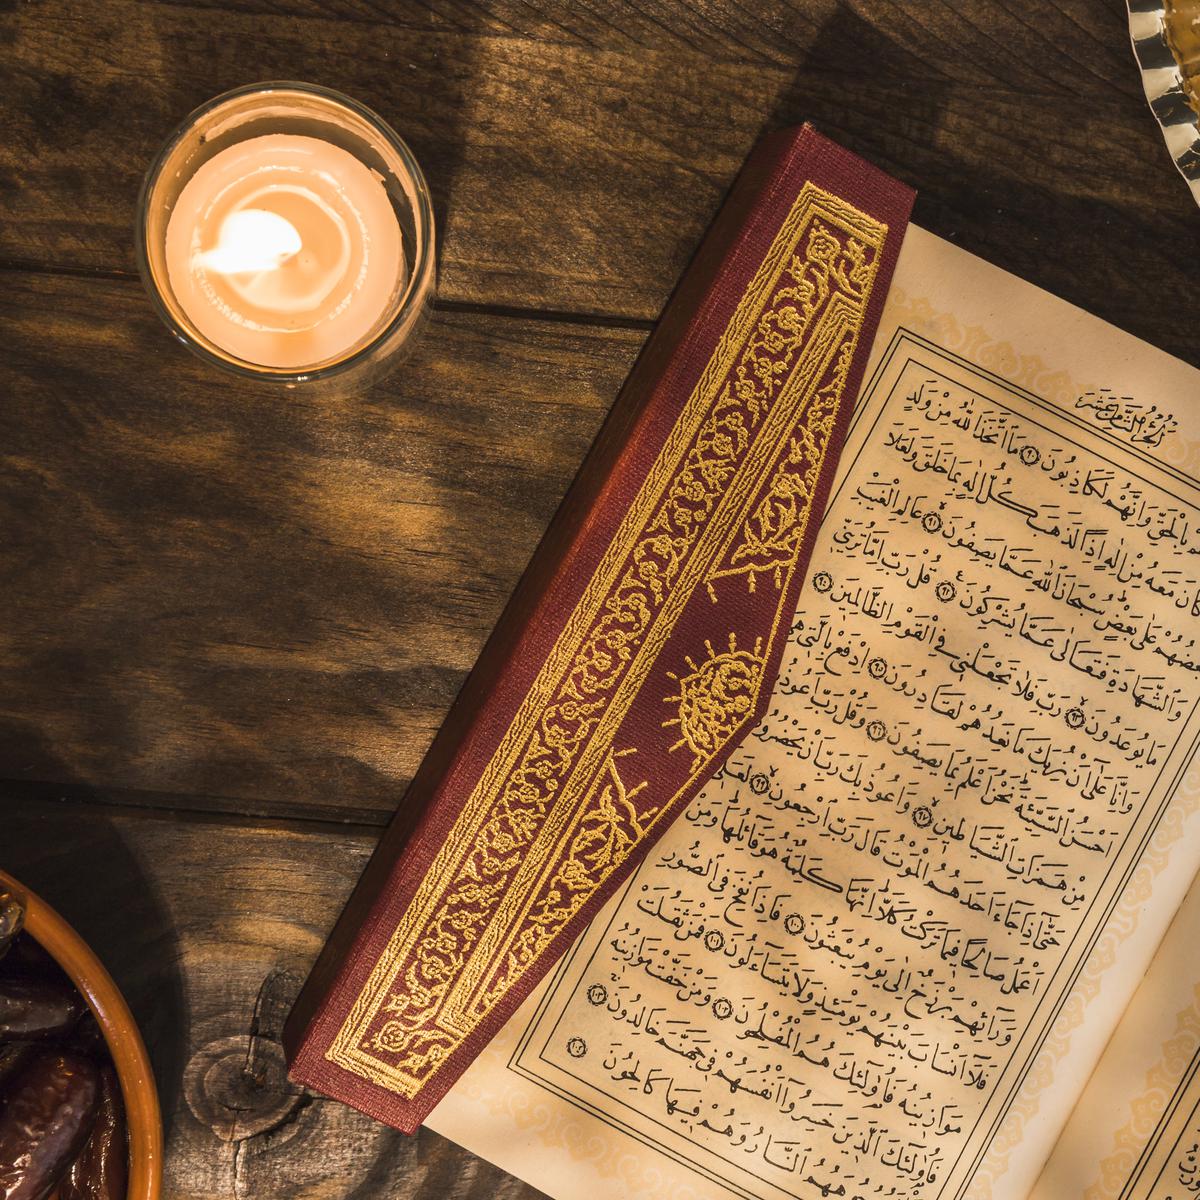 الجزء الثامن عشر
بالحق وانهم لكاذبون ٩٠ ما اتخذ الله من ولد
كان معه من اله اذا لذهب كل اله بما خلق ولعلا
بعضهم على بعض سبحان الله عما يصفون ٩١ عالم الغيب
والشهادة فتعالى عما يشركون ٩٢ قل رب اما تريني
ما يوعدون ٩٣ رب فلا تجعلني في القوم الظالمين ٩٤
وانا على ان نريك ما نعدهم لقادرون ٩٥ ادفع بالتي هي
احسن السيئة نحن اعلم بما يصفون ٩٦ وقل رب اعوذ
من همزات الشياطين ٩٧ واعوذ بك رب ان يحضرون
حتى اذا جاء احدهم الموت قال رب ارجعون ٩٩ لعلي
اعمل صالحا فيما تركت كلا انها كلمة هو قائلها ومن
ورائهم برزخ الى يوم يبعثون ١٠٠ فاذا نفخ في الصور
فلا انساب بينهم يومئذ ولا يتساءلون ١٠١ فمن ثقلت
موازينه فاولئك هم المفلحون ١٠٢ ومن خفت موازينه
فاولئك الذين خسروا انفسهم في جهنم خالدون ١٠٣
النار وهم فيها كالحون ١٠٤